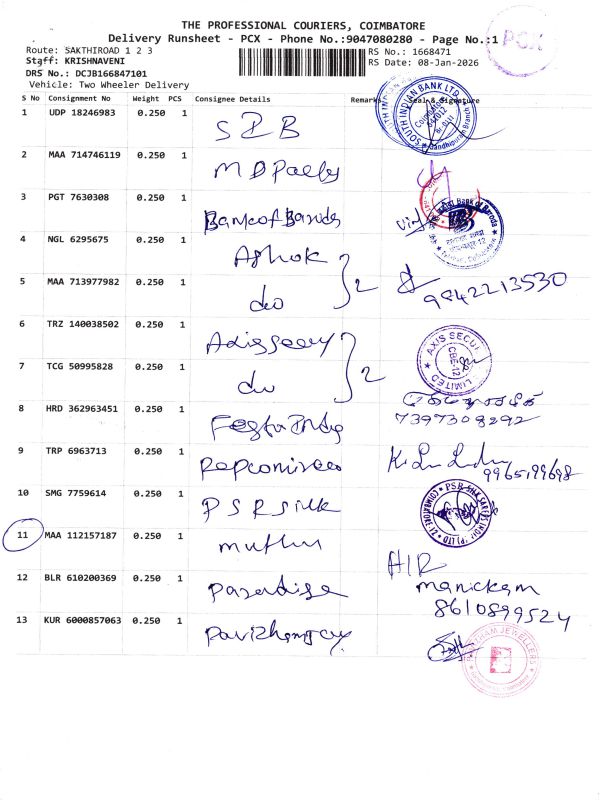 THE PROFESSIONAL COURIERS, COIMBATORE
Delivery Runsheet - PCX - Phone No.:9047080280 - Page No.:1
PCX
Route: SAKTHIROAD 1 2 3
RS No.: 1668471
Staff: KRISHNAVENI
RS Date: 08-Jan-2026
DRS No.: DCJB166847101
Vehicle: Two Wheeler Delivery
S No Consignment No Weight PCS Consignee Details Remarks Seal & Signature
1 UDP 18246983 0.250 1 SIB
SOUTH INDIAN BANK LTD
Coimbatore
641012
Gandhipuram Branch
2 MAA 714746119 0.250 1
3 PGT 7630308 0.250 1 Bank of Baroda
Bank of Baroda
4 NGL 6295675 0.250 1 Ashok
5 MAA 713977982 0.250 1 do 2 9842213530
6 TRZ 140038502 0.250 1
AXIS SECUR LIMITED
CBE-12
7 TCG 50995828 0.250 1 do 2
8 HRD 362963451 0.250 1 Festa Indy
7397308292
9 TRP 6963713 0.250 1
9965199698
10 SMG 7759614 0.250 1 PSR Silk
11 MAA 112157187 0.250 1 muthu
12 BLR 610200369 0.250 1 paradise
AIR
manickam
8610899524
13 KUR 6000857063 0.250 1
JEWELLERS